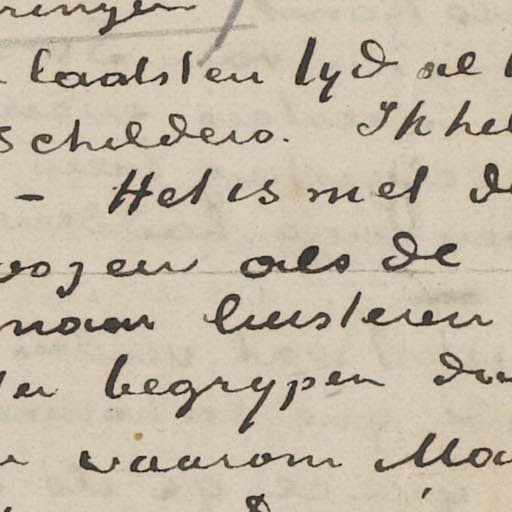 laatsten tyd al
schilders. Ik heb
– Het is met de
oogen als de
naar luisteren
begrypen
waarom Ma